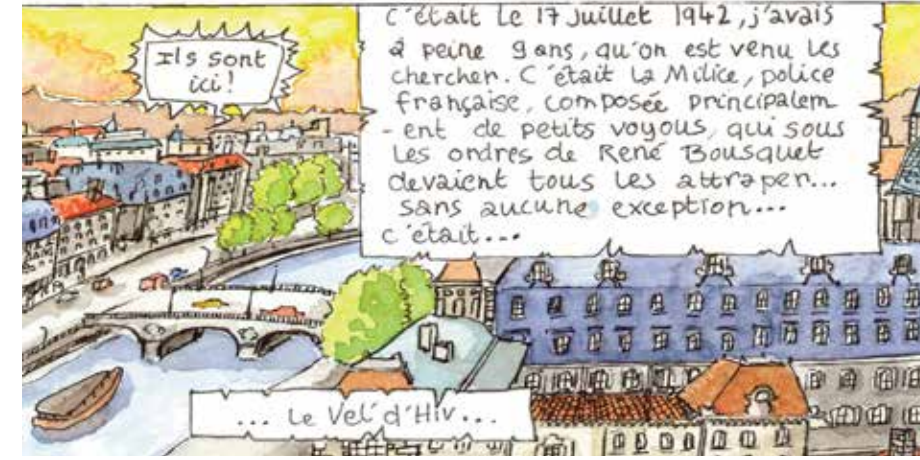 Ils sont
ici!
c'était le 17 Juillet 1942, j'avais
à peine 9 ans, qu'on est venu les
chercher. C'était la Milice, police
française, composée principalem
-ent de petits voyous, qui sous
les ordres de René Bousquet
devaient tous les attraper...
sans aucune exception...
c'était...
... Le Vel'd'Hiv...